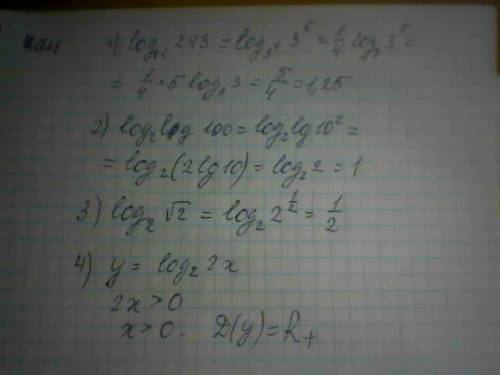 1) log₈₁ 243 = log₃⁴ 3⁵ = 1/4 log₃ 3⁵ =
= 1/4 · 5 log₃ 3 = 5/4 = 1,25
2) log₂ lg 100 = log₂ lg 10² =
= log₂ (2 lg 10) = log₂ 2 = 1
3) log₂ √2 = log₂ 2^(1/2) = 1/2
4) y = log₂ 2x
2x > 0
x > 0. D(y) = R₊